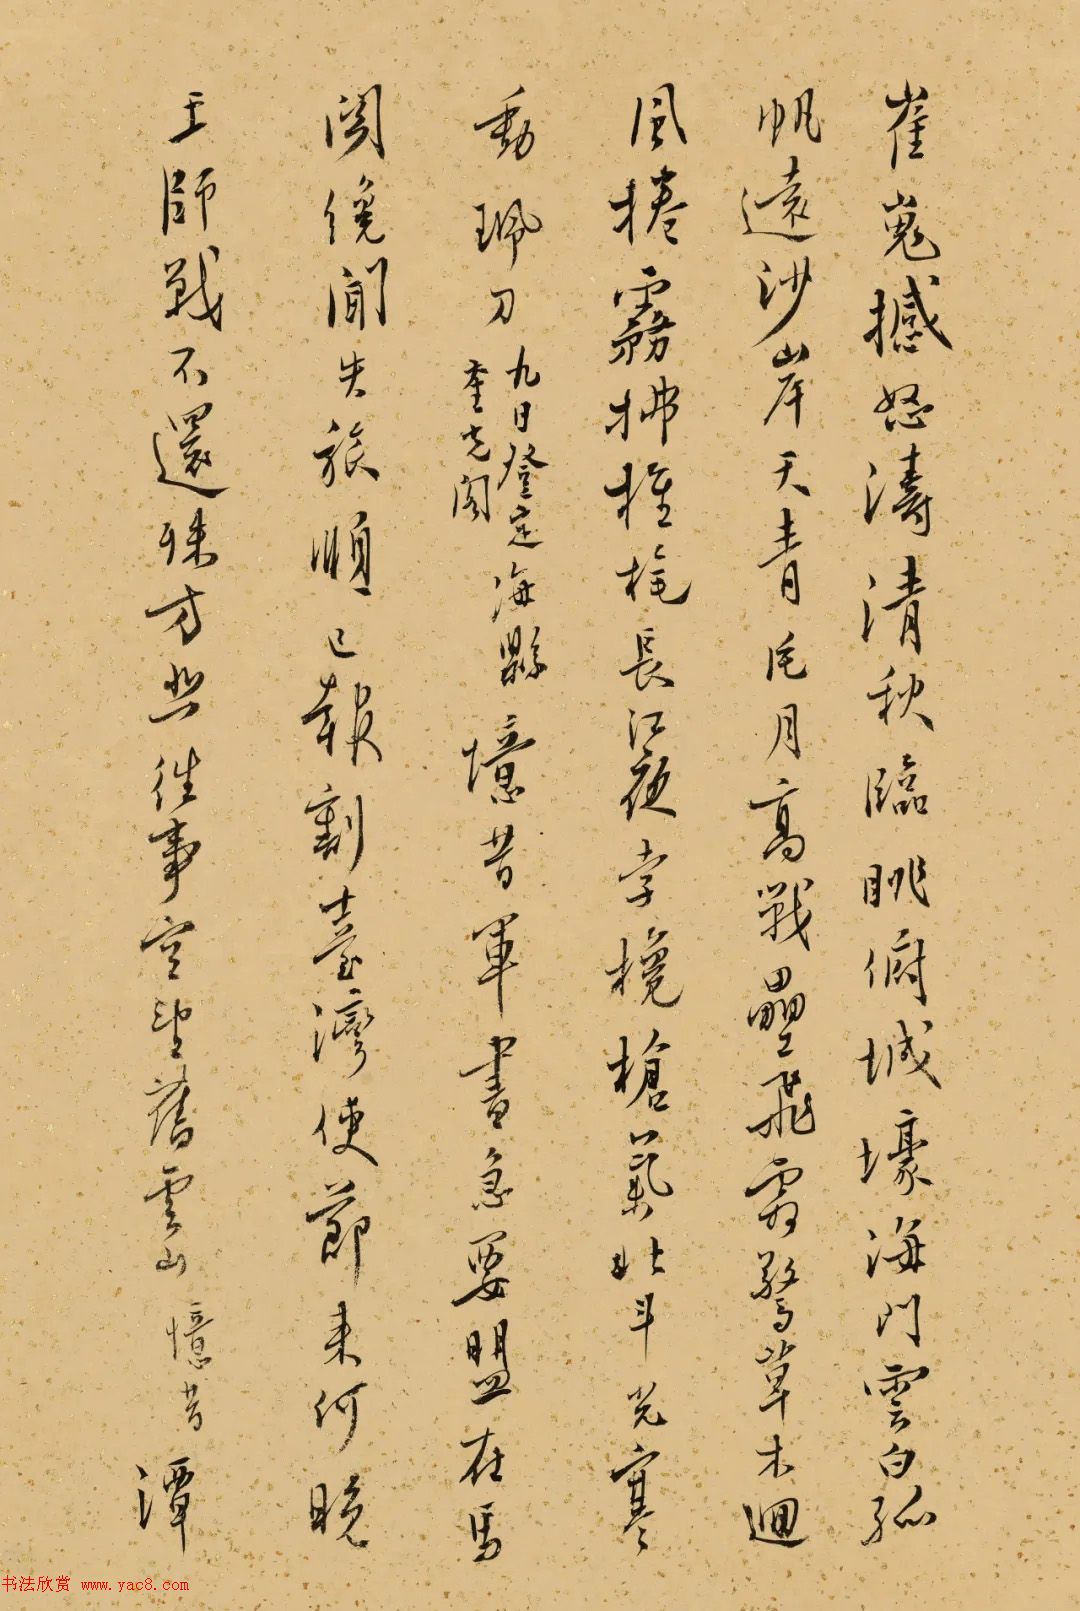 崔嵬撼怒濤清秋臨眺俯城壕海門雲白孤
帆遠沙岸天青片月高戰壘飛霜驚草木迴
風捲霧拂旌旄長江夜孛欃槍氣北斗光寒
動珮刀
九日登定海縣
奎光閣
憶昔軍書急要盟在馬
關纔聞失旅順已報割臺灣使節来何晚
王師戰不還殊方悲往事空望舊雲山 憶昔 潭
书法欣赏 www.yac8.com